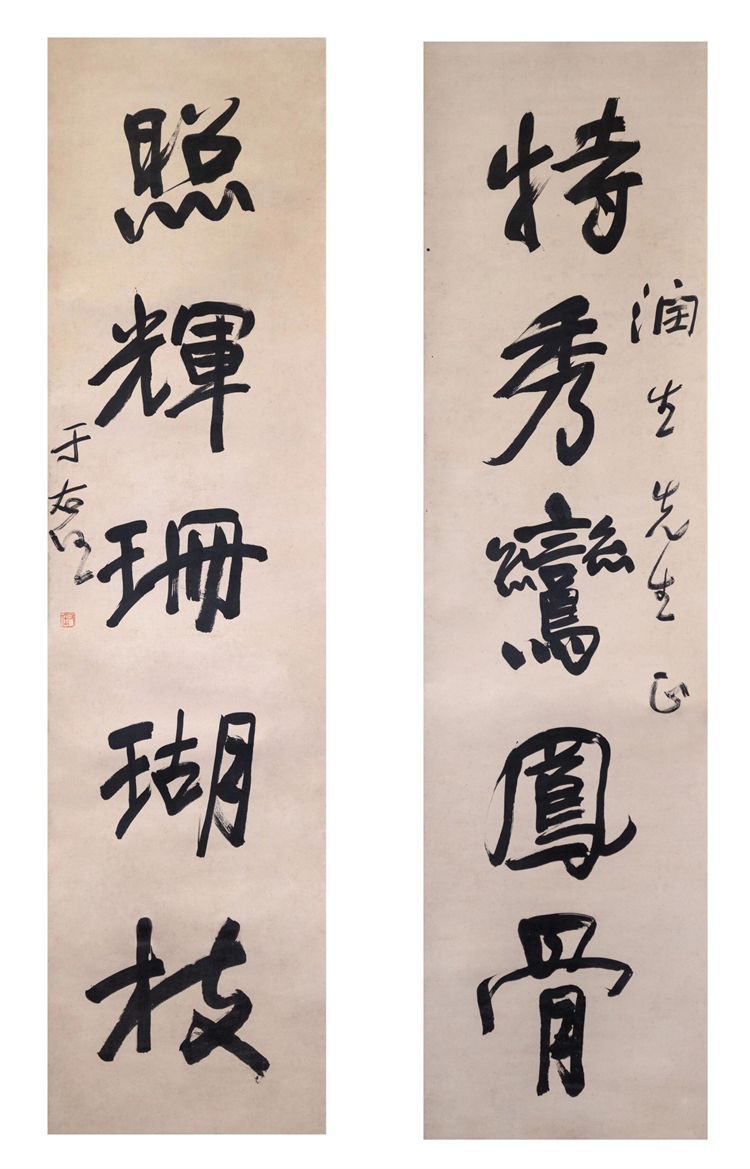 特秀鸞鳳骨
潤生先生正
照輝珊瑚枝
于右任